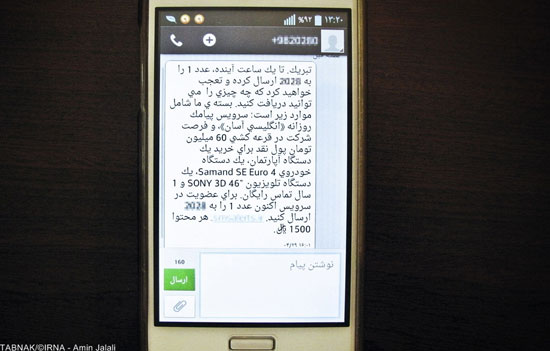 %۹۲ ۱۳:۲۰
+9820280
تبریك. تا یك ساعت آینده، عدد 1 را
به 2028 ارسال کرده و تعجب
خواهید کرد که چه چیزي را مي
توانید دریافت کنید. بسته ي ما شامل
موارد زیر است: سرویس پیامك
روزانه «انگلیسي آسان»، و فرصت
شرکت در قرعه کشي 60 میلیون
تومان پول نقد براي خرید یك
دستگاه آپارتمان، یك دستگاه
خودروي Samand SE Euro 4، یك
دستگاه تلویزیون "46 SONY 3D و 1
سال تماس رایگان. براي عضویت در
سرویس اکنون عدد 1 را به 2028
ارسال کنید. هر محتوا
1500 ﷼.
۰۳/۲۹ ۱۶:۰۱
160
نوشتن پیام
ارسال
TABNAK/©IRNA - Amin Jalali